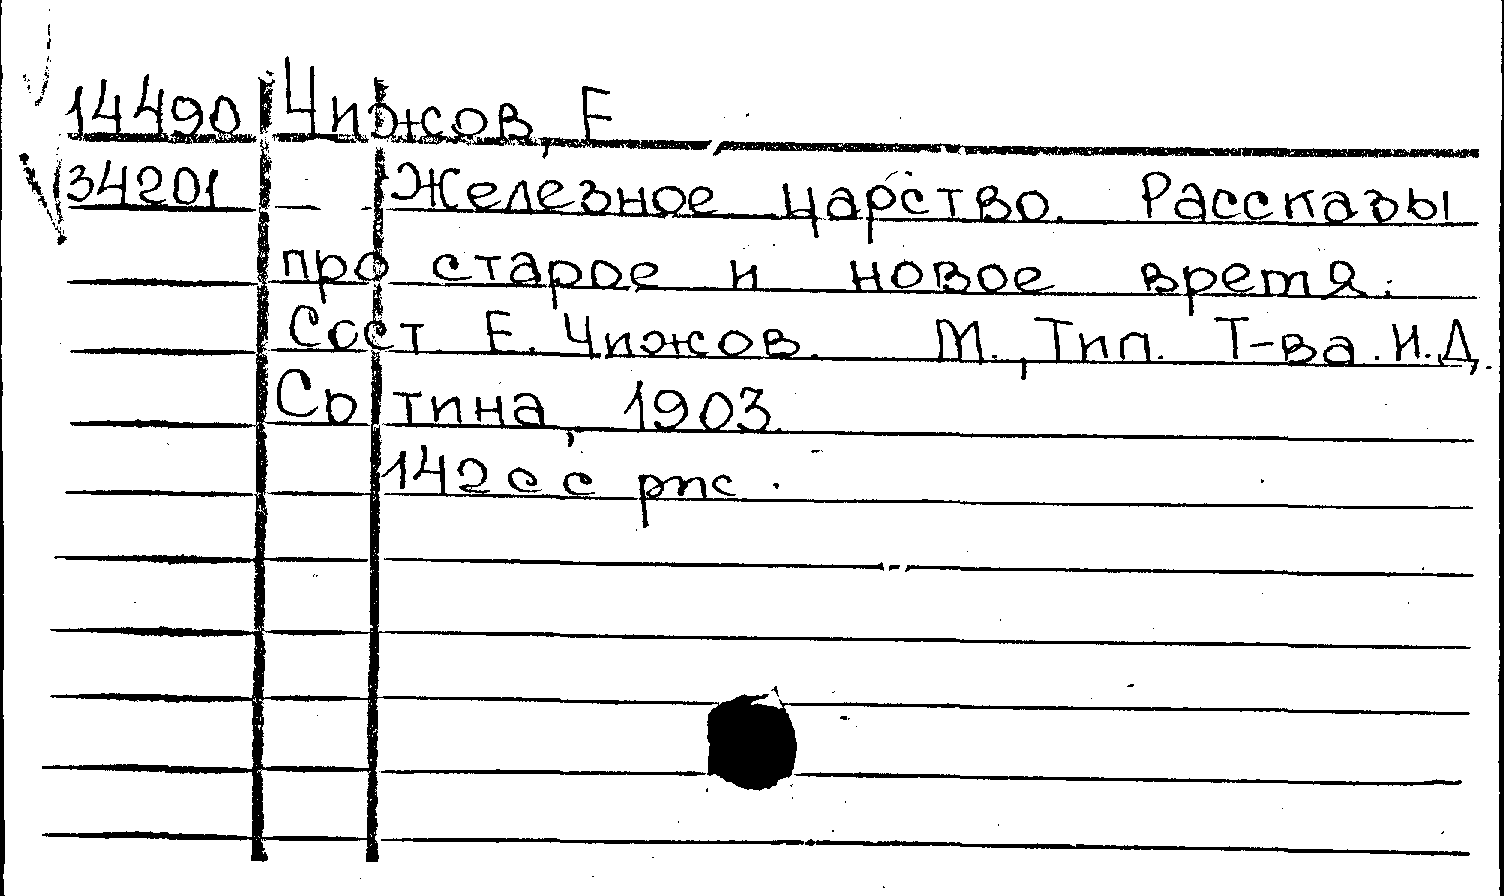 14490 Чижов, Е
34201 Железное царство. Рассказы
про старое и новое время.
Сост Е. Чижов. М., Тип. Т-ва И.Д.
Сытина, 1903.
142 с с рис.